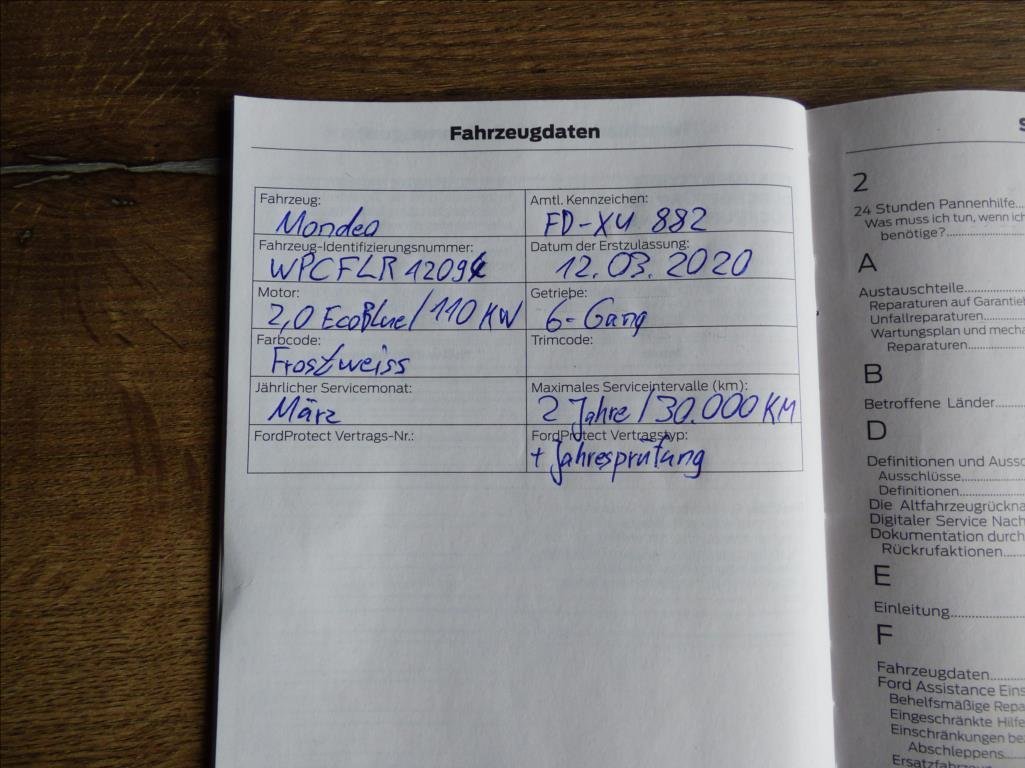 Fahrzeugdaten
Fahrzeug:
Mondeo
Amtl. Kennzeichen:
FD-XU 882
Fahrzeug-Identifizierungsnummer:
Datum der Erstzulassung:
12.03.2020
Motor:
2,0 EcoBlue/110 KW
Getriebe:
6-Gang
Farbcode:
Frostweiss
Trimcode:
Jährlicher Servicemonat:
März
Maximales Serviceintervalle (km):
2 Jahre/30.000 KM
FordProtect Vertrags-Nr.:
FordProtect Vertragstyp:
+ Jahresprüfung
S
2
24 Stunden Pannenhilfe...
Was muss ich tun, wenn ich
benötige?...................
A
Austauschteile..................
Reparaturen auf Garantie
Unfallreparaturen..............
Wartungsplan und mecha
Reparaturen..............
B
Betroffene Länder.............
D
Definitionen und Aussc
Ausschlüsse.................
Definitionen.................
Die Altfahrzeugrückna
Digitaler Service Nach
Dokumentation durch
Rückrufaktionen..........
E
Einleitung....................
F
Fahrzeugdaten..........
Ford Assistance Eins
Behelfsmäßige Repa
Eingeschränkte Hilfe
Einschränkungen be
Abschleppens....